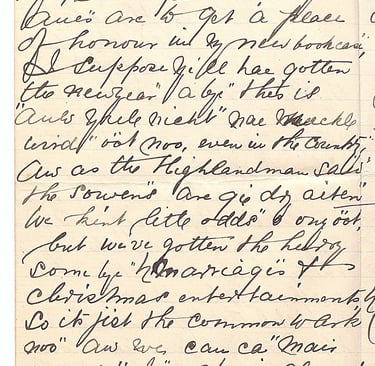 are to get a place
of honour in y new bookcase,
& I suppose yi'll hae gotten
the newyear" a bye" this is
"Auld yule nicht" nae muckle
wird" oot noo, even in the country,
Aw as the Highlandman said
the sowen's are gie dry aiten"
We kent little odds" o ony oot,
but we've gotten the
some bye" marriages &
Christmas entertainments
So its jist the common wark
noo" Aw we can ca" mair